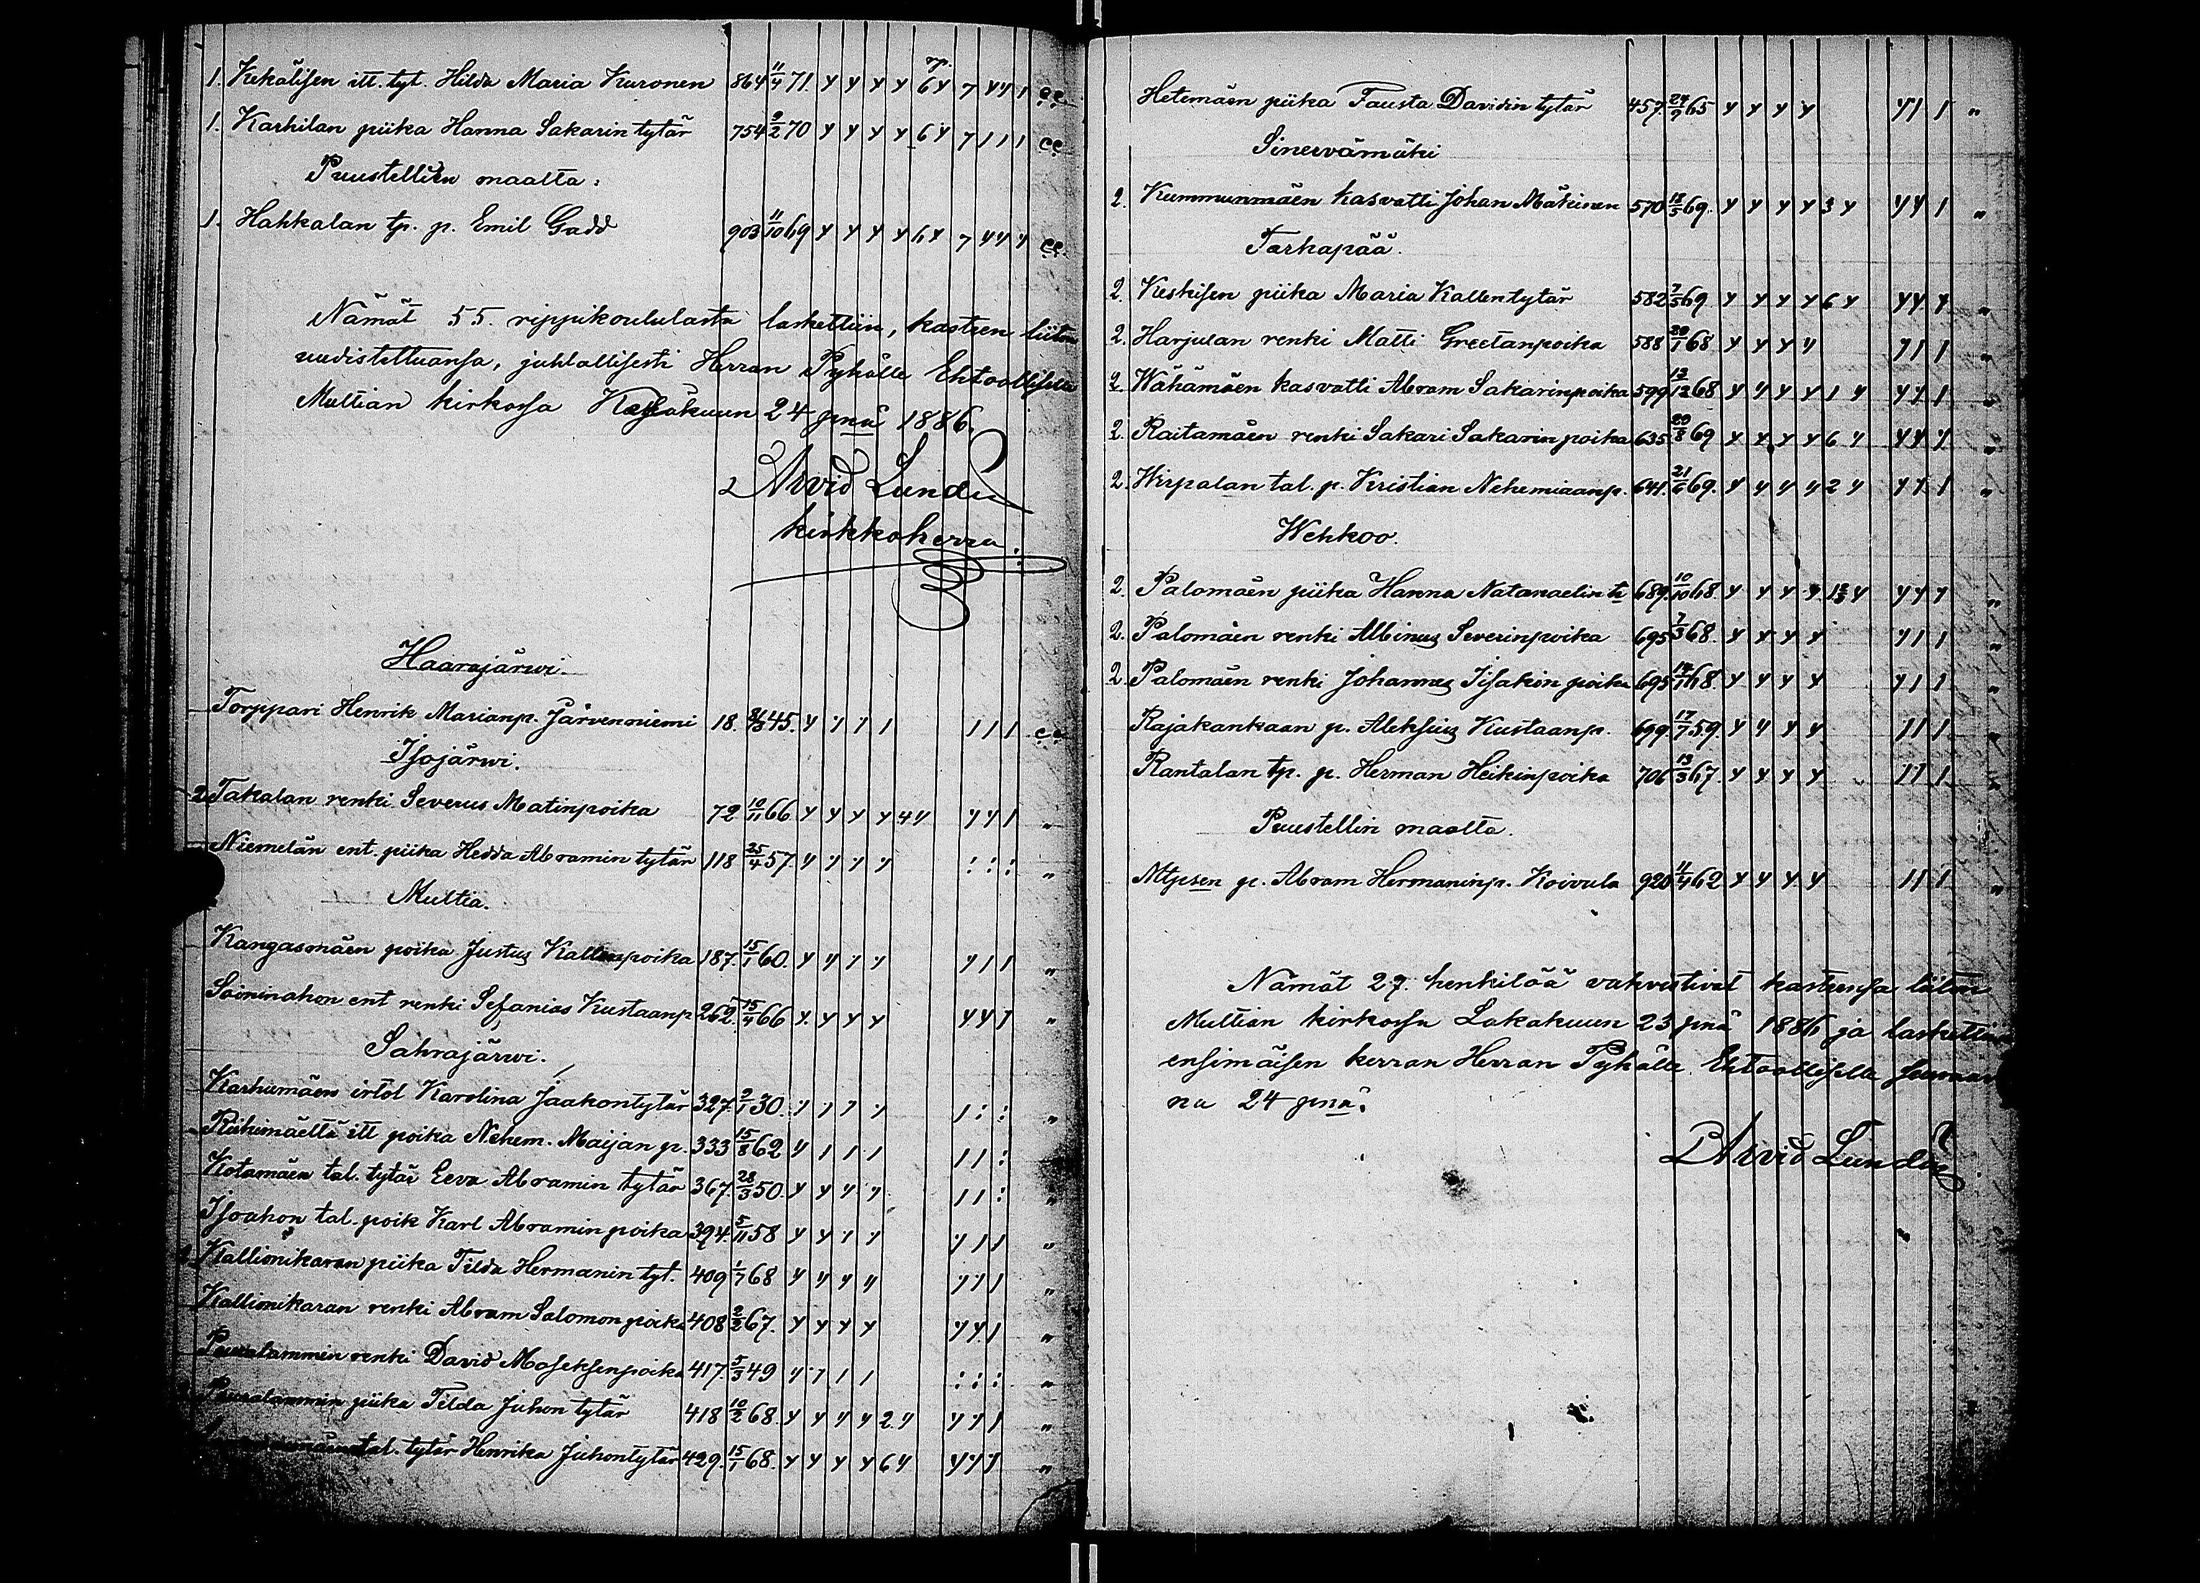 1. Kekälisen itt. tyt. Hilda Maria Kuronen 864 11/4 71. y y y y 6 y 7 y y 1 cc
1. Karhilan piika Hanna Sakarintytär 754 9/2 70 y y y y 6 y 7 1 1 1 cc
Puustellin maalta:
1. Hakkalan tp. p. Emil Gadd 903 11/10 69 y y y y 6 y 7 y y y cc
Nämät 55. rippikoululasta laskettiin, kasteen liiton
uudistettuansa, juhlallisesti Herran Pyhälle Ehtoolliselle
Multian kirkossa Kesäkuun 24 pnä 1886.
Arvid Lunden
kirkkoherra.
Haarajärwi.
Torppari Henrik Marianp. Järvenniemi 18. 45. y 1 1 1 1 1 1 cc
Isojärwi.
2 Takalan renki Severus Matinpoika 72 10/11 66 y y y y 4 y y y 1 "
Niemelän ent. piika Hedda Abramin tytär 118 25/4 57. y y y y : : : "
Multia.
Kangasmäen poika Justus Kallenpoika 187. 15/1 60. y y 1 y y 1 1 "
Soininahon ent renki Sefanias Kustaanp 262. 15/4 66 y. y y y y y 1 "
Sahrajärwi.
Karhumäen irtol Karolina Jaakontytär 327. 2/1 30. 1 1 1 1 1 : : "
Riihimäeltä itt poika Nehem. Maijan p. 333 15/8 62 y 1 1 1 1 1 : "
Kotamäen tal. tytär Eeva Abramin tytär 367. 28/3 50. y y y y 1 1 : "
Isoahon tal. poik Karl Abramin poika 394. 5/11 58 y y 1 1 y 1 1 "
Kallionikaran piika Tilda Hermanin tyt. 409 1/7 68 y y y y 1 1 1 "
Kallionikaran renki Abram Salomon poika 408 2/2 67. y y y y y y 1 "
Puualammin renki David Moseksenpoika 417. 5/3 49 y 1 1 1 : : : "
Puualammin piika Tilda Juhon tytär 418 10/2 68. y y y y 2 y y y 1 "
tal. tytär Henrika Juhontytär 429. 15/1 68. y y y y 6 y y y y "
Hetemäen piika Fausta Davidin tytär 457. 24/9 65 y y y y y 1 1 "
Sinervämäki
2. Kummunmäen kasvatti Johan Mäkinen 570 18/5 69. y y y y 3 y y y 1 "
Tarhapää.
2. Keskisen piika Maria Kallentytär 582 7/5 69 y y y y 6 y y y y "
2. Harjulan renki Matti Greetanpoika 588 20/1 68 y y y y y 1 1 "
2. Wähämäen kasvatti Abram Sakarinpoika 599 13/12 68 y y y y 1 y y y 1 "
2. Raitamäen renki Sakari Sakarin poika 635 20/8 69 y y y y 6 y y y y "
2. Wirpalan tal. p. Kristian Nehemiaanp. 641. 21/6 69. y y y y 2 y y y 1 "
Wehkoo.
2. Palomäen piika Hanna Natanaelin t. 689. 10/10 68. y y y y y y y y "
2. Palomäen renki Albinus Severinpoika 695 7/3 68. y y y y y 1 1 "
2. Palomäen renki Johannes Iisakin poika 695 14/1 68. y y y y y 1 1 "
Rajakankaan p. Aleksius Kustaanp. 699. 17/7 59. y y y y 1 1 1 "
Rantalan tp. p. Herman Heikinpoika 706 13/3 67. y y y y 1 1 1 "
Puustellin maalta.
Mtpsen p. Abram Hermaninp. Koivula 920 11/4 62 y y y y 1 1 1 "
Nämät 27. henkilöä vahvistivat kasteensa liiton
Multian kirkossa Lokakuun 23 pnä 1886 ja laskettiin
ensimäisen kerran Herran Pyhälle Ehtoolliselle seuraava
na 24 pnä.
Arvid Lunden